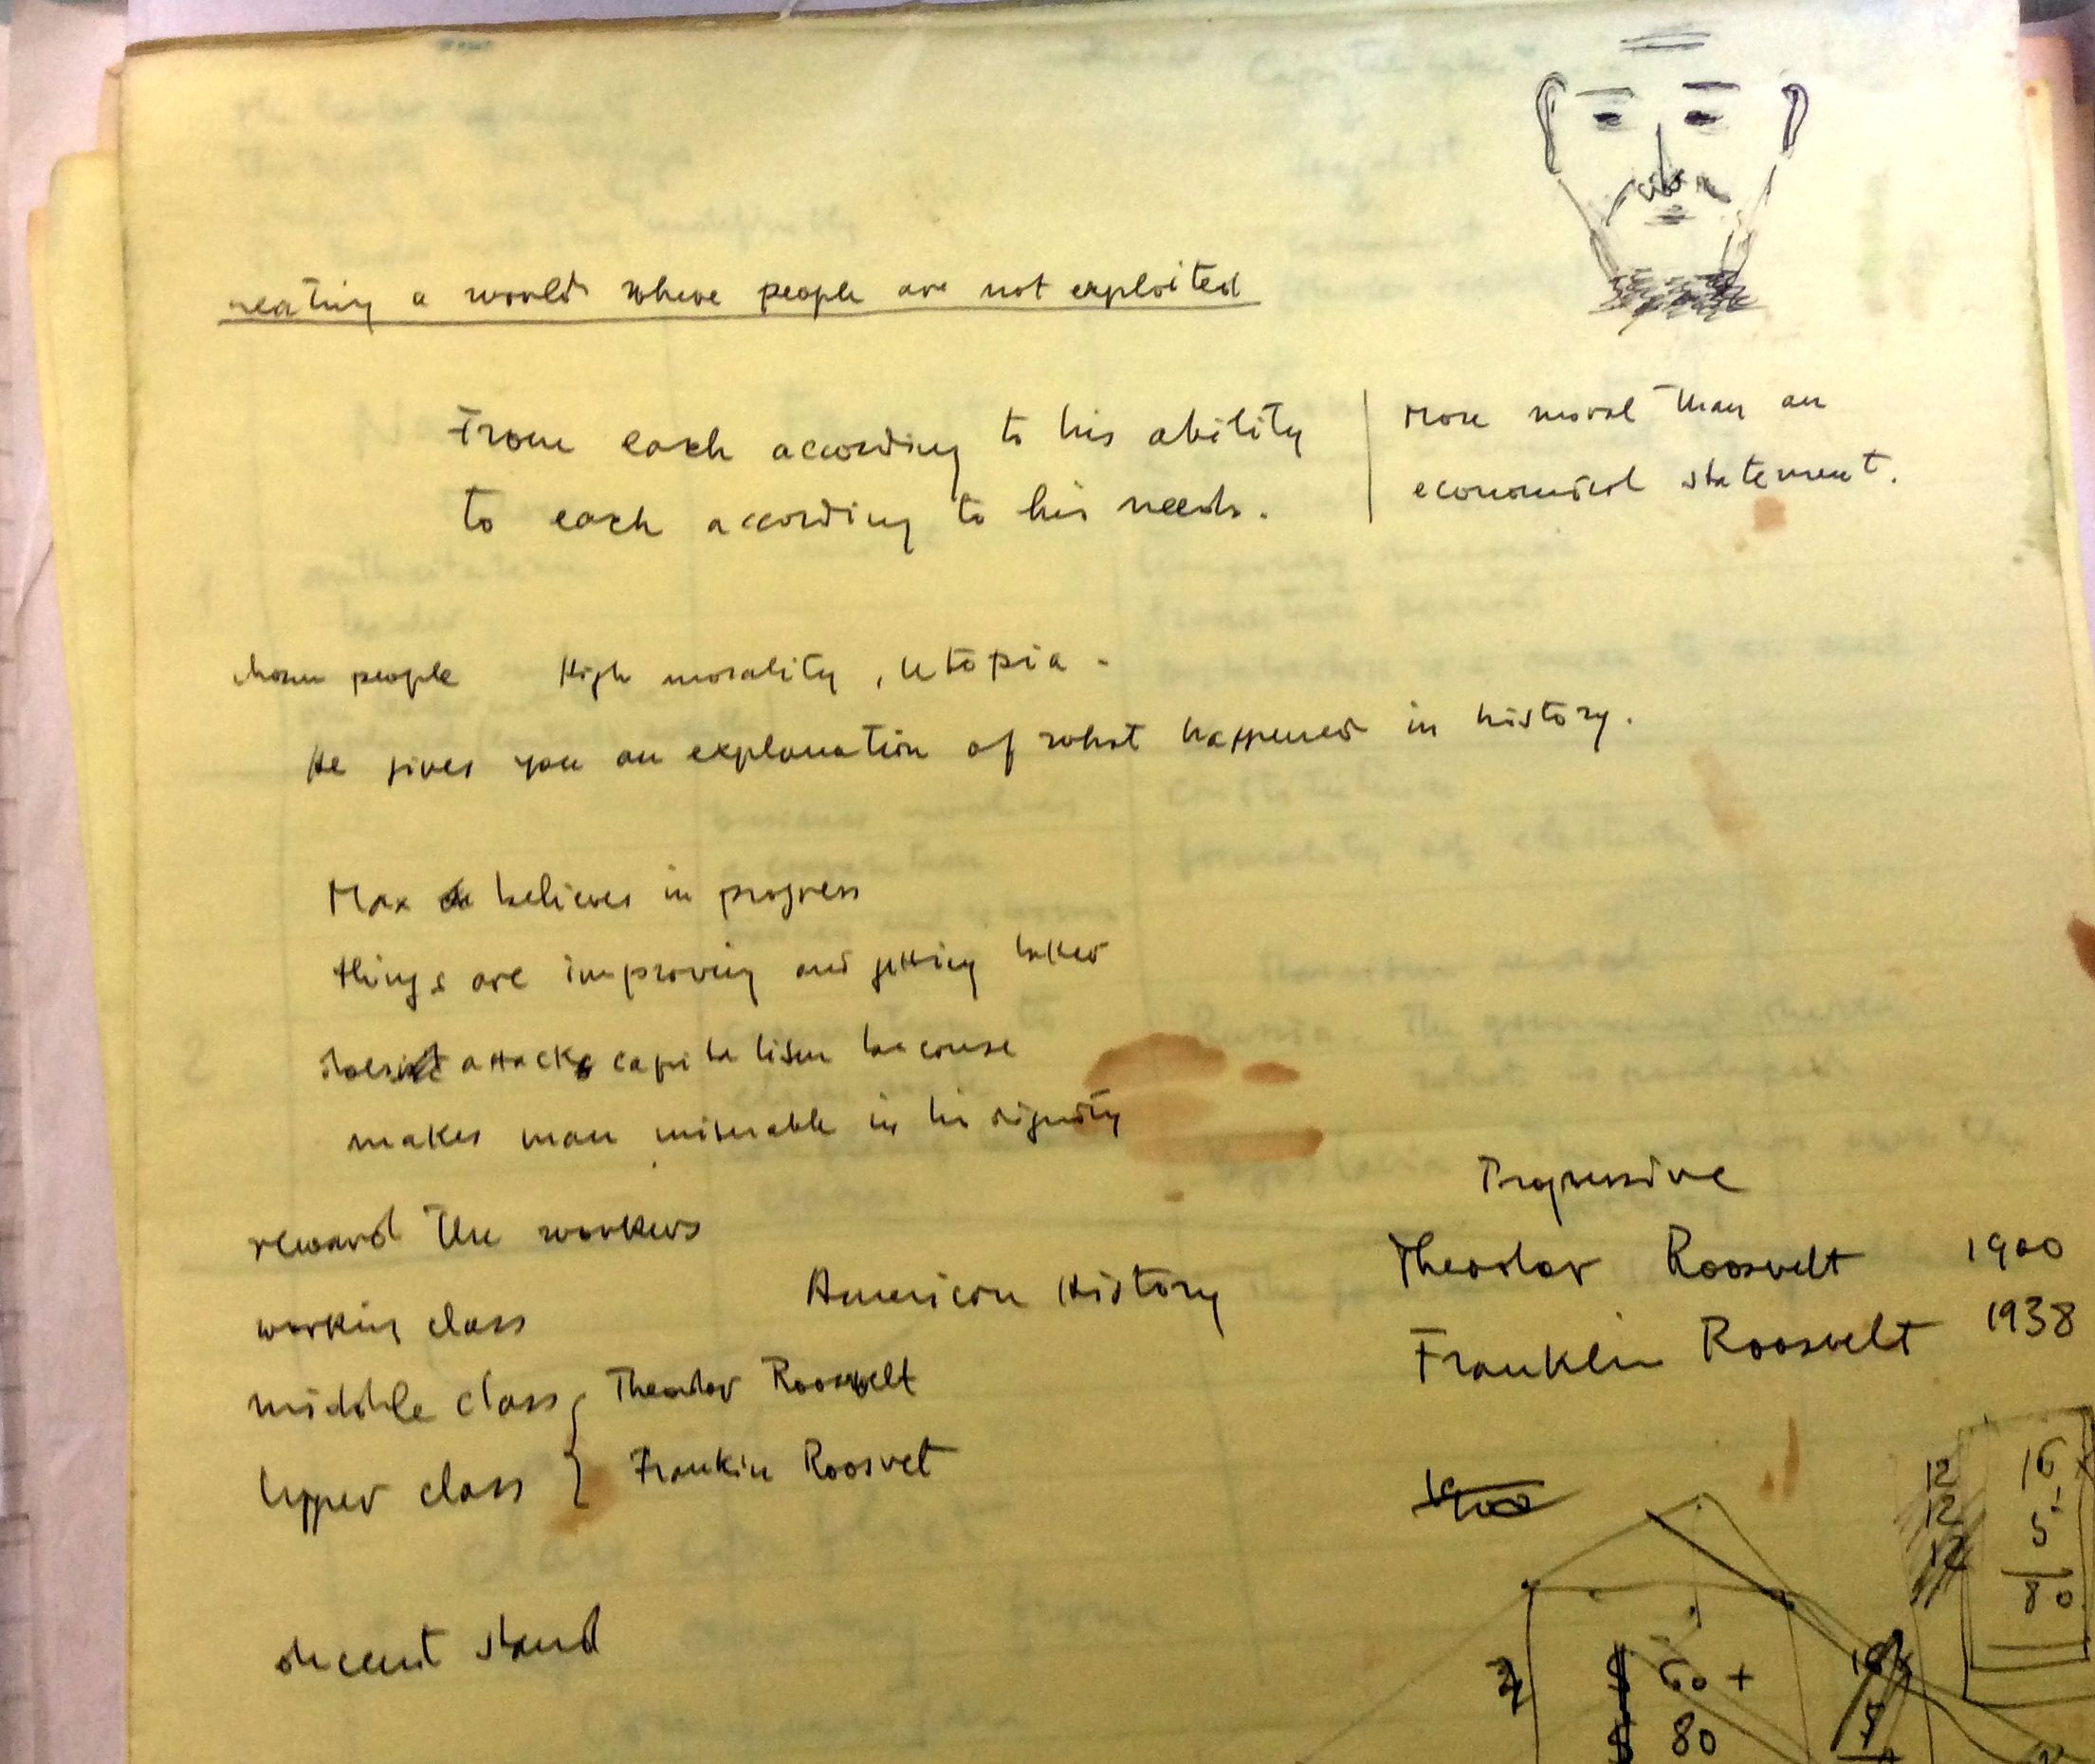 creating a world where people are not exploited
From each according to his ability
to each according to his needs.
More moral than an
economical statement.
people High morality, Utopia.
He gives you an explanation of what happened in history.
Max believes in progress
things are improving and getting better
attacks capitalism because
makes man miserable in his dignity
reward the workers
working class
middle class
Upper class
American History
Theodor Roosevelt
Frankin Roosvet
Progressive
Theodor Roosvelt 1900
Franklin Roosvelt 1938
1900
decent stand
12
12
12
16
5
80
60 +
80